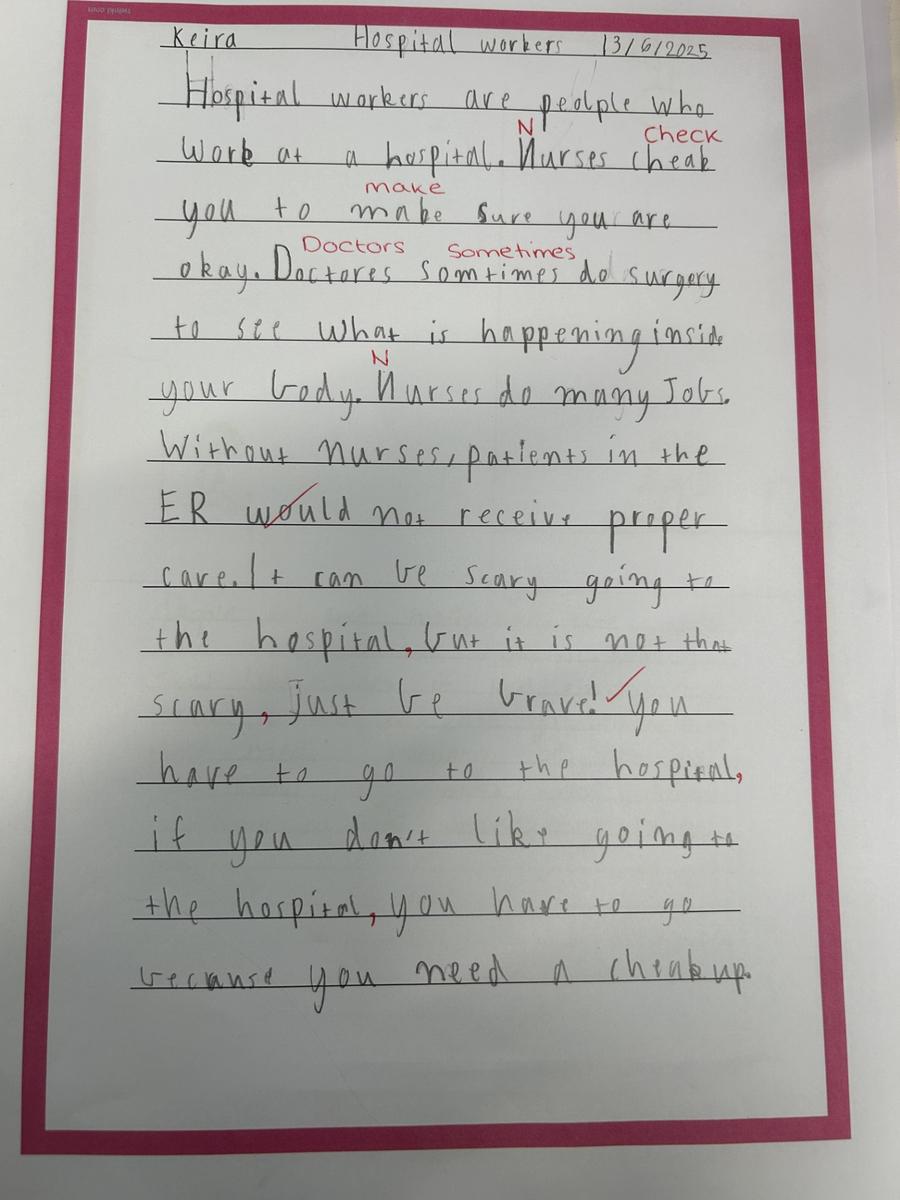 twinkl.com
Keira Hospital workers 13/6/2025
Hospital workers are peolple who
N Check
Work at a hospital. Nurses cheak
make
you to make sure you are
Doctors Sometimes
okay. Doctores Somtimes do surgery
to see What is happening inside
N
your body. Nurses do many Jobs.
Without nurses, patients in the
ER would not receive proper
care. It can be scary going to
the hospital, but it is not that
scary, just be brave! You
have to go to the hospital,
if you don't like going to
the hospital, you have to go
because you need a cheak up.